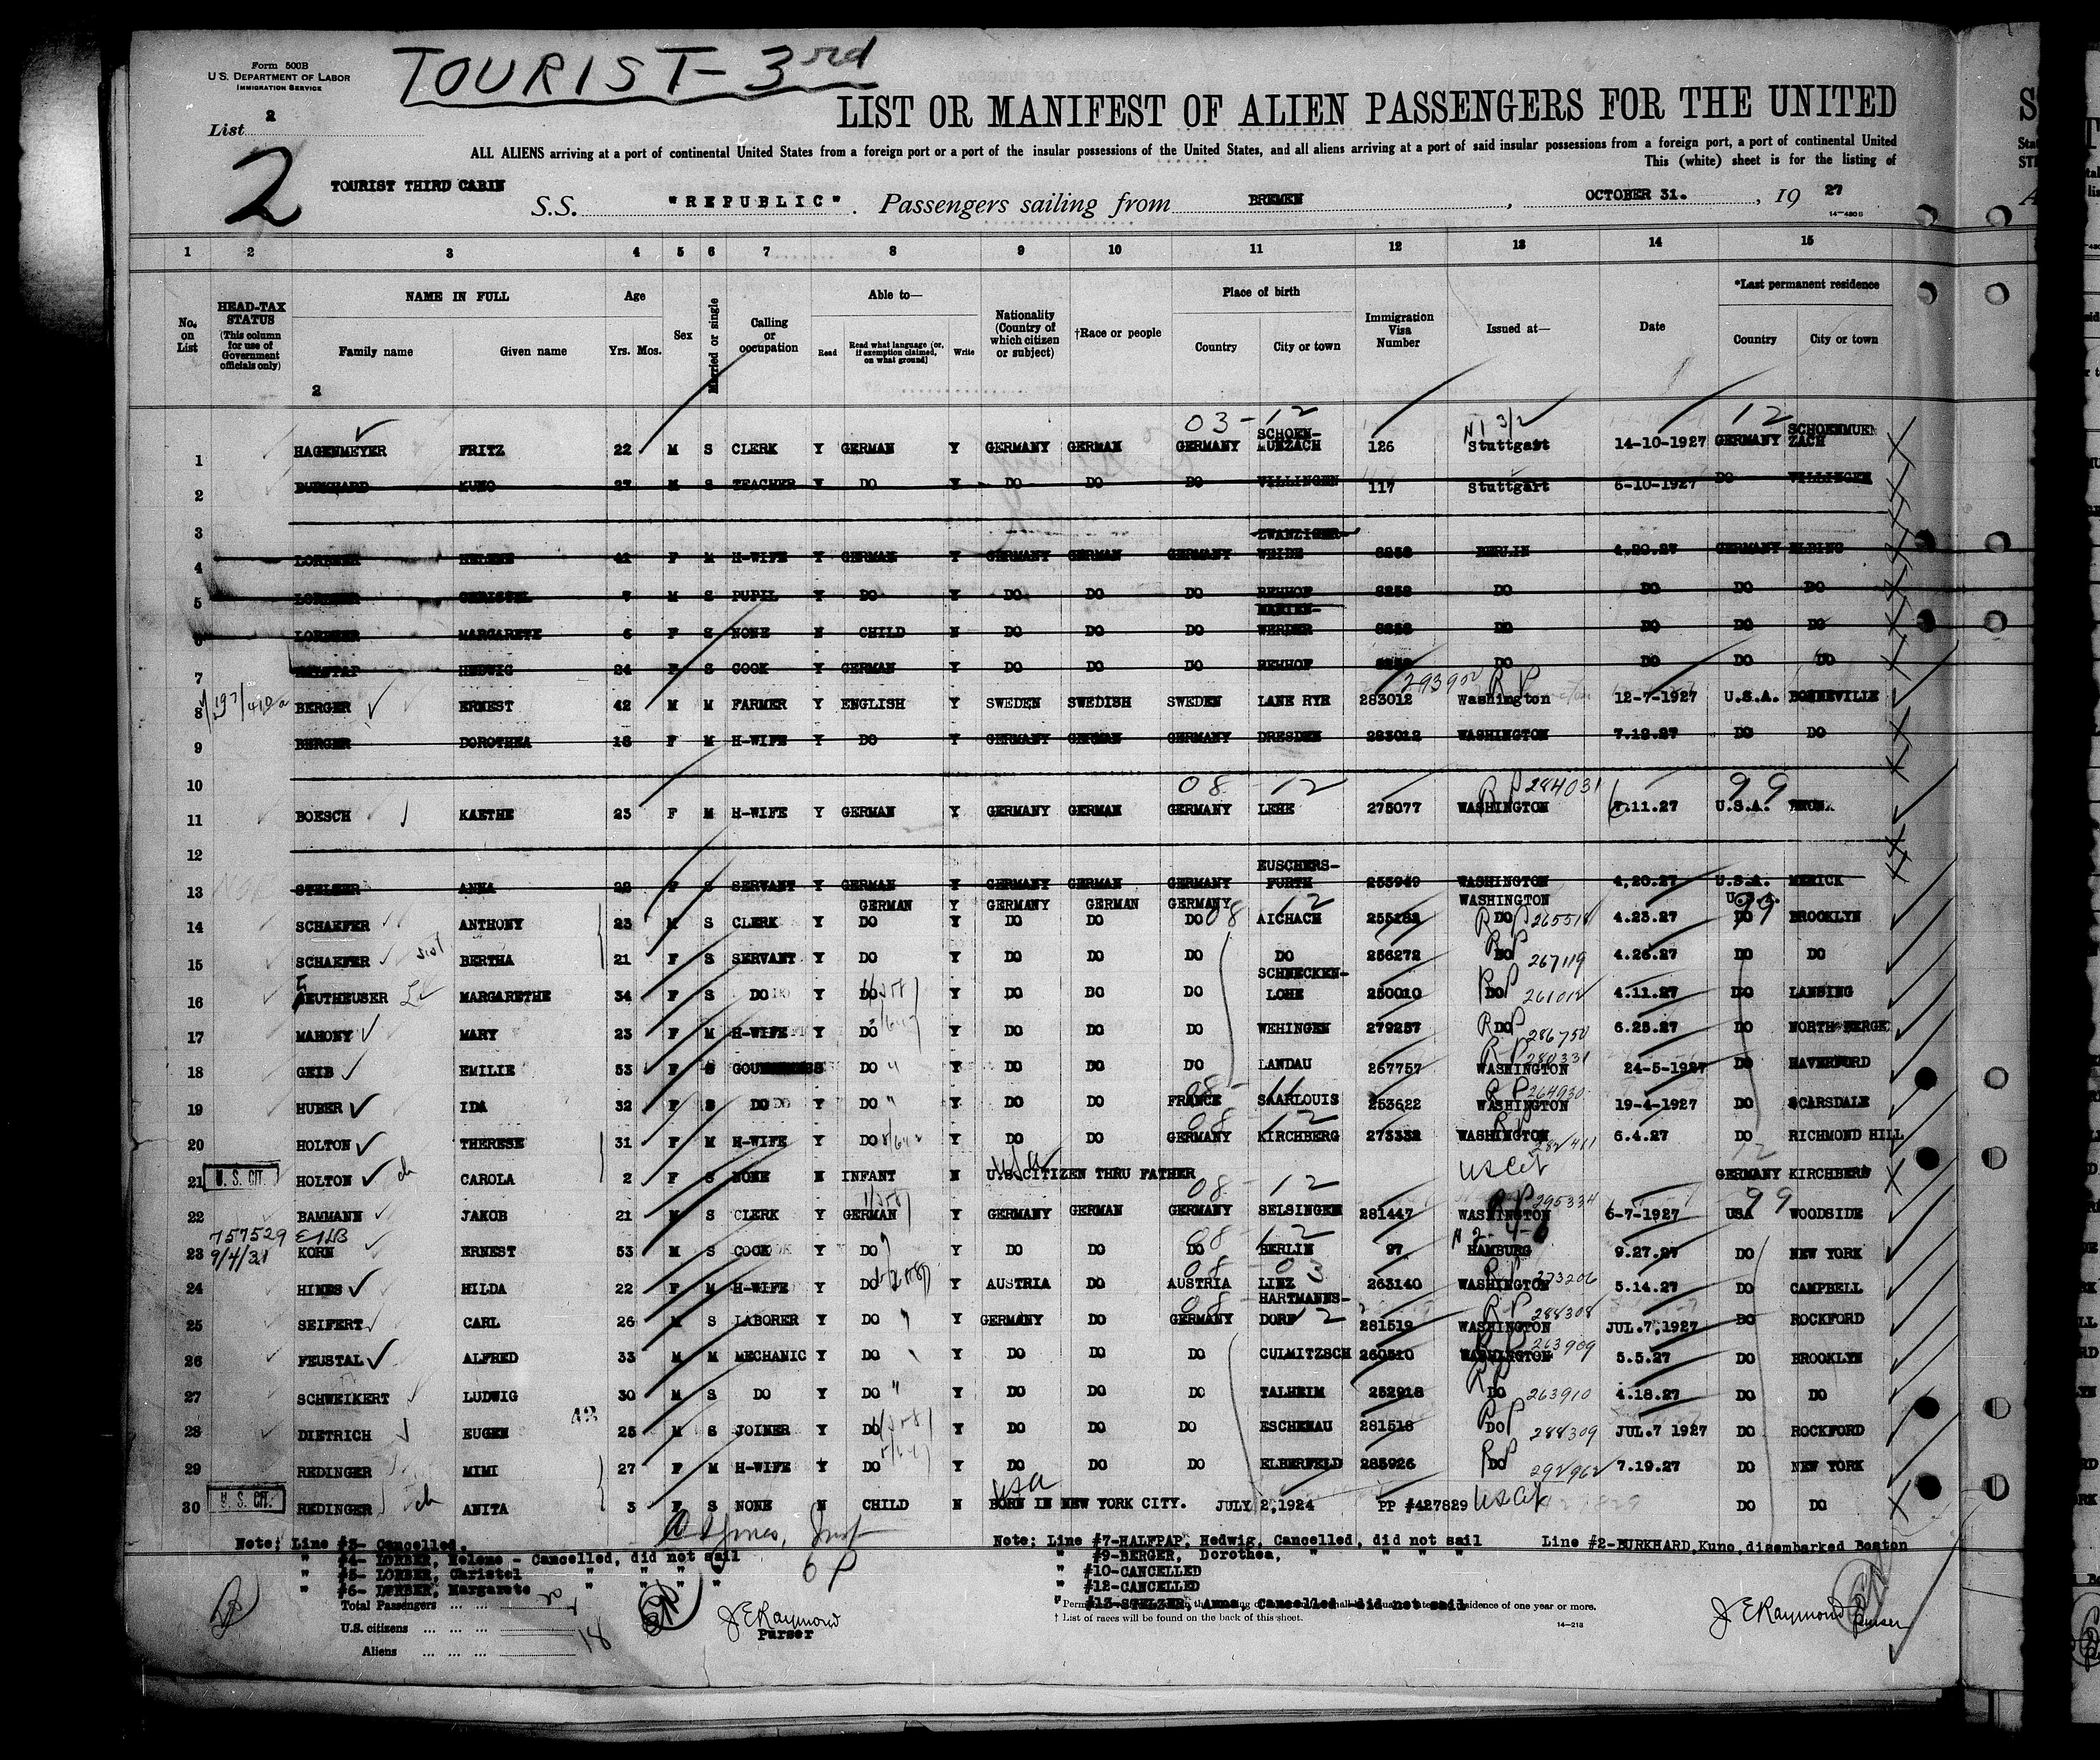 Form 500B
U.S. DEPARTMENT OF LABOR
IMMIGRATION SERVICE
TOURIST - 3rd
List 2
2
LIST OR MANIFEST OF ALIEN PASSENGERS FOR THE UNITED
ALL ALIENS arriving at a port of continental United States from a foreign port or a port of the insular possessions of the United States, and all aliens arriving at a port of said insular possessions from a foreign port, a port of continental United
This (white) sheet is for the listing of
TOURIST THIRD CABIN
S.S. "REPUBLIC". Passengers sailing from BREMEN, OCTOBER 31., 19 27
14-480 B
1 2 3 4 5 6 7 8 9 10 11 12 13 14 15
No. on List
HEAD-TAX STATUS (This column for use of Government officials only)
NAME IN FULL Family name Given name
Age Yrs. Mos.
Sex
Married or single
Calling or occupation
Able to— Read Read what language (or, if exemption claimed, on what ground) Write
Nationality (Country of which citizen or subject)
†Race or people
Place of birth Country City or town
Immigration Visa Number
Issued at—
Date
*Last permanent residence Country City or town
2
03-12 NI 3/2 12
1 HAGENMEYER FRITZ 22 M S CLERK Y GERMAN Y GERMANY GERMAN GERMANY SCHOEN-MUEZACH 126 Stuttgart 14-10-1927 GERMANY SCHOENMUENZACH
2 BURKHARD KUNO 27 M S TEACHER Y DO Y DO DO DO VILLINGEN 117 Stuttgart 6-10-1927 DO VILLINGEN
3
4 LORBER HELENE 41 F M H-WIFE Y GERMAN Y GERMANY GERMAN GERMANY ZWANZIGER-WEIDE BERLIN 4.20.27 GERMANY ELBING
5 LORBER CHRISTEL 7 M S PUPIL Y DO Y DO DO DO REHHOF DO DO DO DO
6 LORBER MARGARETE 6 F S NONE N CHILD N DO DO DO MARIEN-WERDER DO DO DO DO
7 HEDWIG 24 F S COOK Y GERMAN Y DO DO DO REHHOF DO DO DO DO
8 BERGER ERNEST 42 M M FARMER Y ENGLISH Y SWEDEN SWEDISH SWEDEN LANE RYR 283012 293902 RP Washington 12-7-1927 U.S.A. BONNEVILLE
9 BERGER DOROTHEA 18 F M H-WIFE Y DO Y GERMANY GERMAN GERMANY DRESDEN 283012 WASHINGTON 7.12.27 DO DO
10
08-12 RP 284031 99
11 BOESCH KAETHE 23 F M H-WIFE Y GERMAN Y GERMANY GERMAN GERMANY LEHE 275077 WASHINGTON 6.11.27 U.S.A.
12
13 STELZER ANNA 22 F S SERVANT Y GERMAN Y GERMANY GERMAN GERMANY EUSCHERS-FURTH 253949 WASHINGTON 4,20.27 U.S.A. MERICK
GERMAN Y GERMANY GERMAN GERMANY 12 WASHINGTON U.S.A.
14 SCHAEFER ANTHONY 23 M S CLERK Y DO Y DO DO DO 08 AICHACH 255182 DO RP 265518 4.23.27 DO 99 BROOKLYN
15 SCHAEFER sist BERTHA 21 F S SERVANT Y DO Y DO DO DO DO 256272 DO RP 267119 4.26.27 DO DO
16 LEUTHEUSER MARGARETHE 34 F S DO Y DO Y DO DO DO SCHNECKEN-LOHE 250010 DO RP 261012 4.11.27 DO LANSING
17 MAHONY MARY 23 F M H-WIFE Y DO Y DO DO DO WEHINGEN 279257 DO RP 286750 6.25.27 DO NORTH BERGE
18 GEIB EMILIE 53 F S Y DO Y DO DO DO LANDAU 267757 RP 280331 WASHINGTON 24-5-1927 DO HAVERFORD
19 HUBER IDA 32 F S DO Y DO Y DO DO FRANCE 08-11 SAARLOUIS 253622 RP 264930 WASHINGTON 19-4-1927 DO SCARSDALE
20 HOLTON THERESE 31 F M H-WIFE Y DO Y DO DO GERMANY 08-12 KIRCHBERG 273332 RP WASHINGTON 282411 6.4.27 DO RICHMOND HILL
21 U. S. CIT. HOLTON ch CAROLA 2 F S NONE N INFANT N U.S. CITIZEN THRU FATHER usa US Cit 12 GERMANY KIRCHBERG
22 BAMMANN JAKOB 21 M S CLERK Y GERMAN Y GERMANY GERMAN GERMANY 08-12 SELSINGEN 281447 RP 295334 WASHINGTON 6-7-1927 99 USA WOODSIDE
757529
9/4/31
23 KORN ERNEST 53 M S COOK Y DO Y DO DO DO 08-12 BERLIN 97 HAMBURG 9.27.27 DO NEW YORK
24 HINES HILDA 22 F M H-WIFE Y DO Y AUSTRIA DO AUSTRIA 08-03 LINZ 263140 RP 273206 WASHINGTON 5.14.27 DO CAMPBELL
25 SEIFERT CARL 26 M S LABORER Y DO Y GERMANY DO GERMANY 08-12 HARTMANNS-DORF 281519 RP 288308 WASHINGTON JUL.7,1927 DO ROCKFORD
26 FEUSTAL ALFRED 33 M M MECHANIC Y DO Y DO DO DO CULMITZSCH 260510 RP 263909 WASHINGTON 5.5.27 DO BROOKLYN
27 SCHWEIKERT LUDWIG 30 M S DO Y DO Y DO DO DO TALHEIM 252918 RP DO 263910 4.18.27 DO DO
28 DIETRICH EUGEN 25 M S JOINER Y DO Y DO DO DO ESCHENAU 281518 RP DO 288309 JUL.7 1927 DO ROCKFORD
29 REDINGER MIMI 27 F M H-WIFE Y DO Y DO DO DO ELBERFELD 285926 RP DO 292962 7.19.27 DO NEW YORK
30 U. S. CIT. REDINGER ch ANITA 3 F S NONE N CHILD N usa BORN IN NEW YORK CITY. JULY 2,1924 PP #427829 US Cit DO DO
Note: Line #3- Cancelled.
" #4- LORBER, Helene - Cancelled, did not sail
" #5- LORBER, Christel " " " "
" #6- LORBER, Margarete " " " "
Note: Line #7-HALFPAP, Hedwig, Cancelled, did not sail
" #9-BERGER, Dorothea, " " " "
" #10-CANCELLED
" #12-CANCELLED
" #13-STELZER, Anna, Cancelled did not sail
Line #2-BURKHARD,Kuno,disembarked Boston
Total Passengers 20
U.S. citizens 2
Aliens 18
6 P
J E Raymond
Purser
residence of one year or more.
† List of races will be found on the back of this sheet.
14-213
J E Raymond
Purser